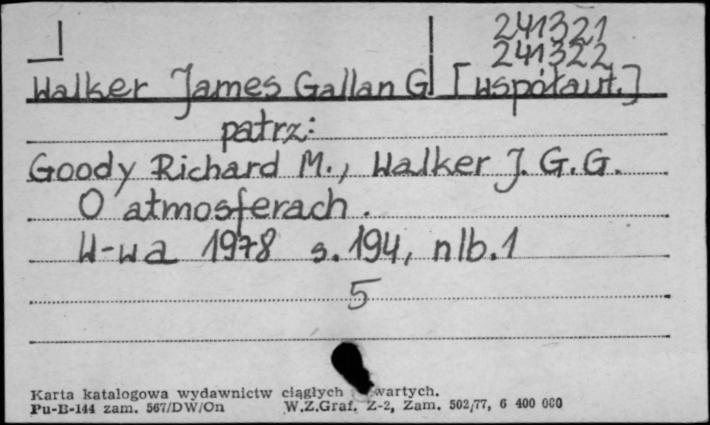 241321
241322
Walker James Gallan G [współaut.]
patrz:
Goody Richard M., Walker J. G. G.
O atmosferach.
W-wa 1978 s. 194, nlb. 1
5
Karta katalogowa wydawnictw ciągłych wartych.
Pu-B-144 zam. 567/DW/On W.Z.Graf. Z-2, Zam. 502/77, 6 400 000